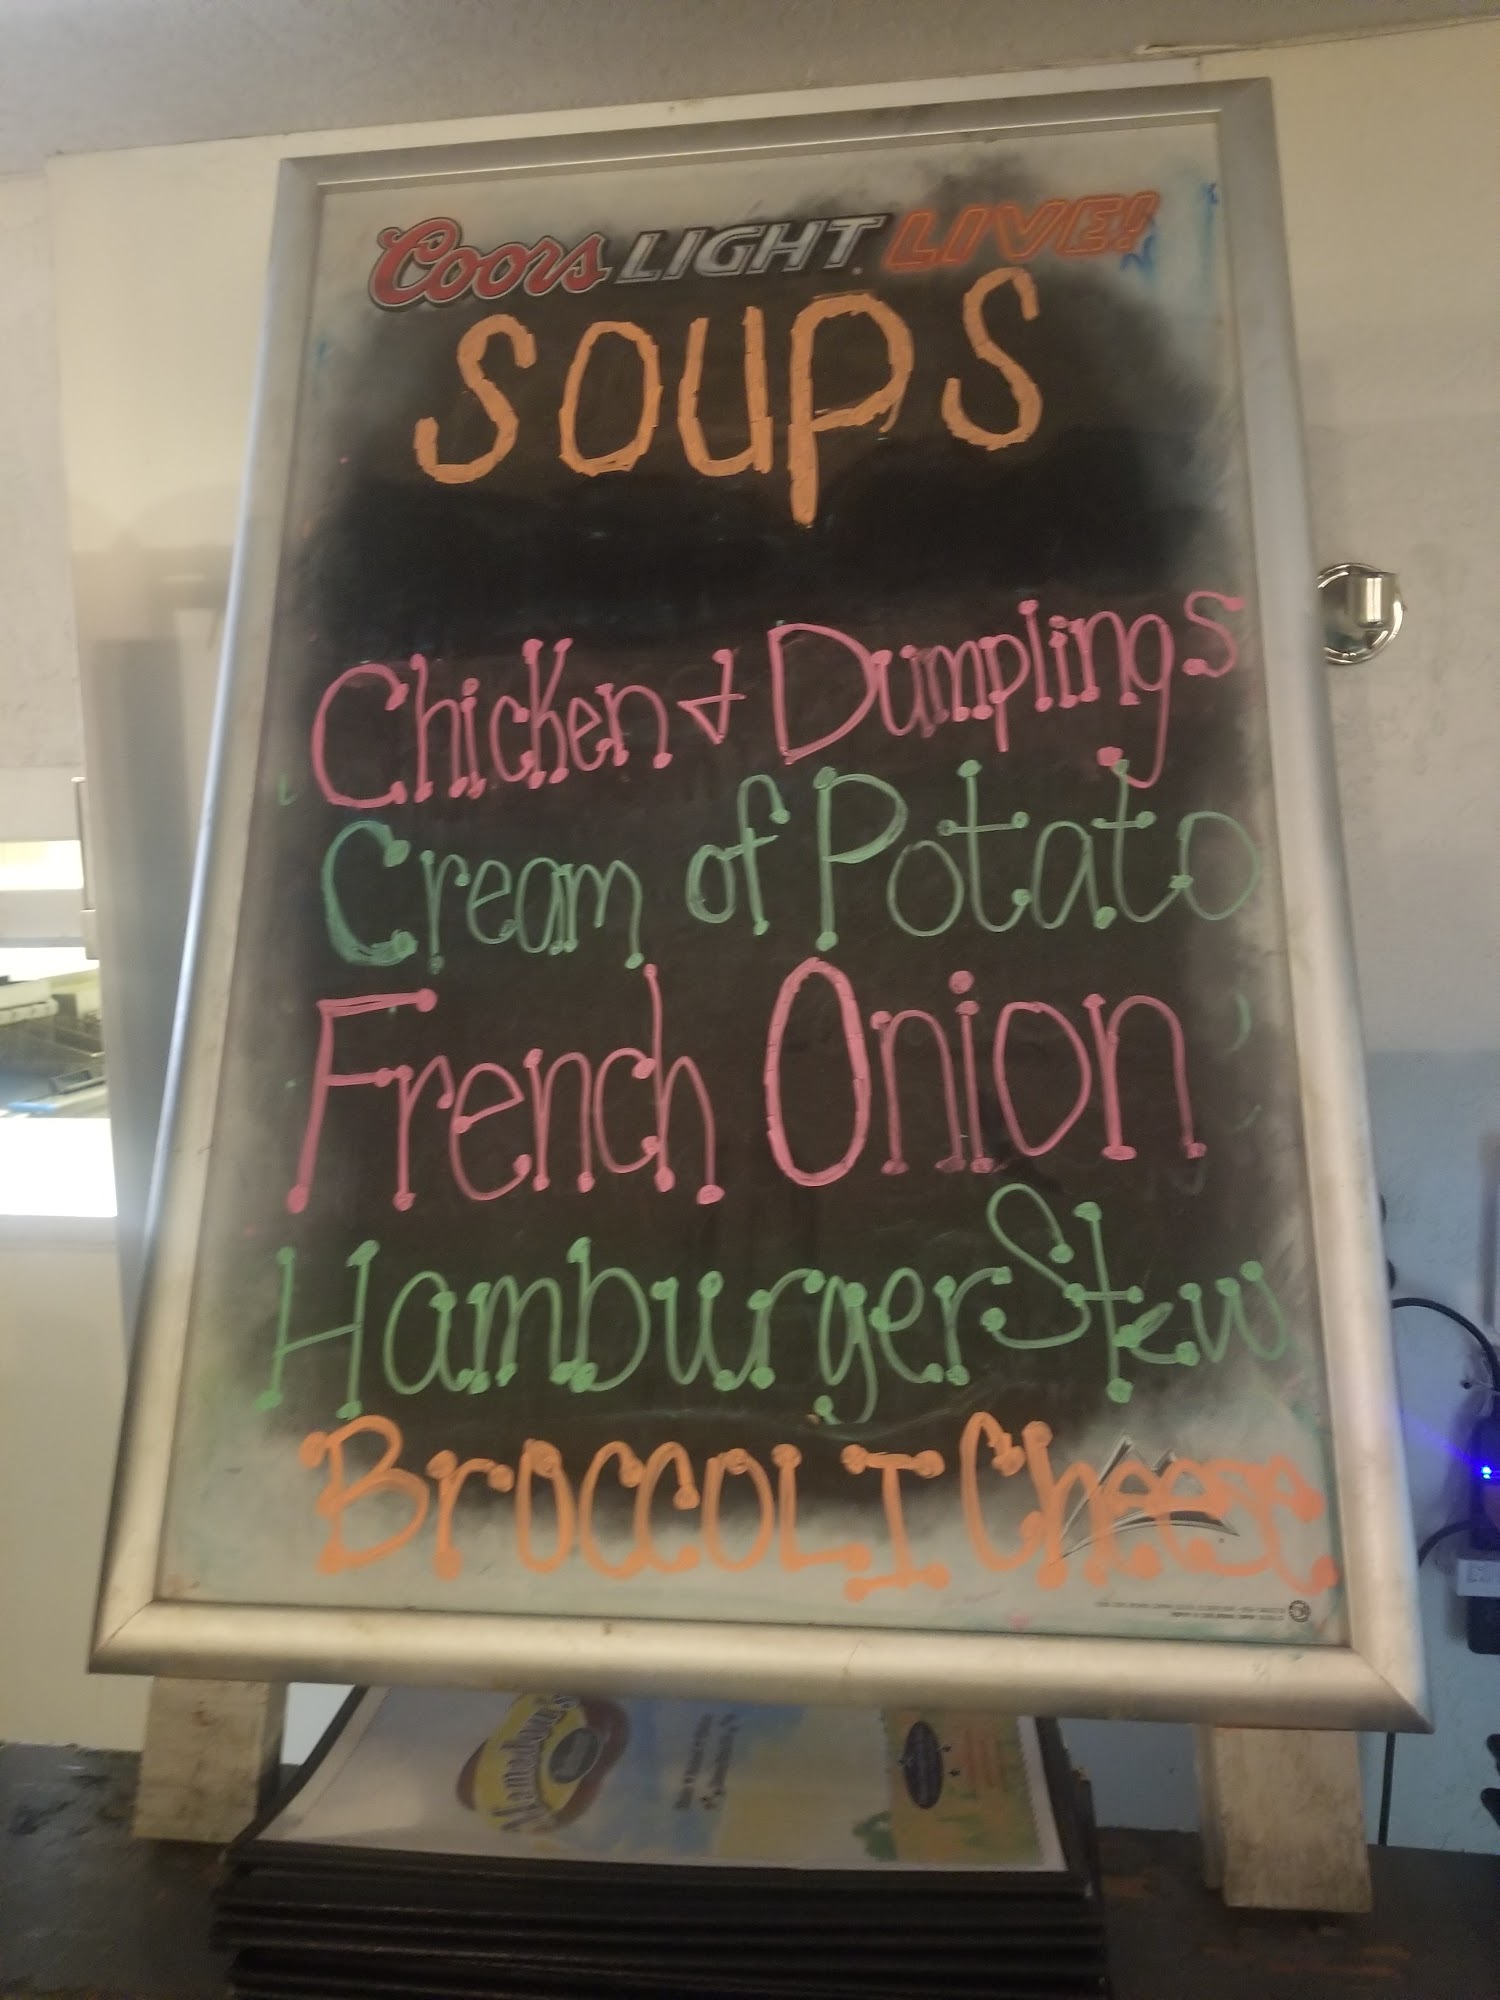 Coors LIGHT LIVE!
SOUPS
Chicken & Dumplings
Cream of Potato
French Onion
Hamburger Stew
BROCCOLI Cheese